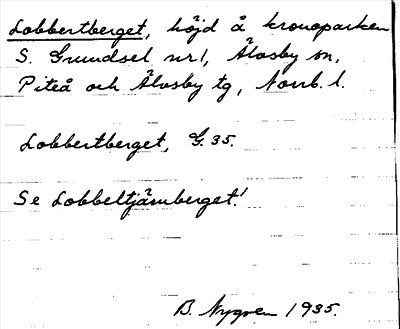 Lobbertberget, höjd å kronoparken
S. Grundsel nr 1, Älvsby sn,
Piteå och Älvsby tg, Norrb. l.
Lobbertberget, G. 35.
Se Lobbeltjärnberget!
B. Nygren 1935.